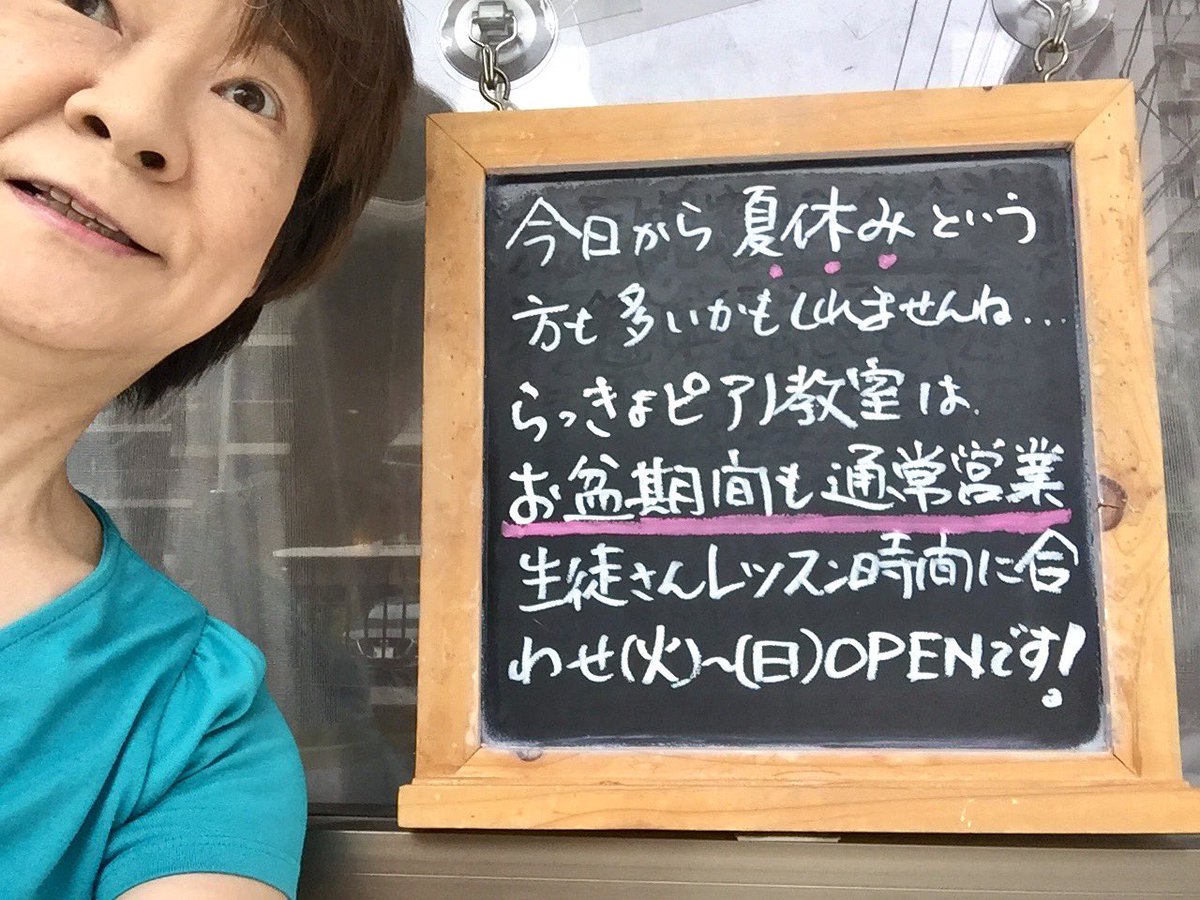 今日から夏休みという
方も多いかもしれませんね...
らっきょピアノ教室は
お盆期間も通常営業
生徒さんレッスン時間に合
わせ(火)～(日)OPENです!